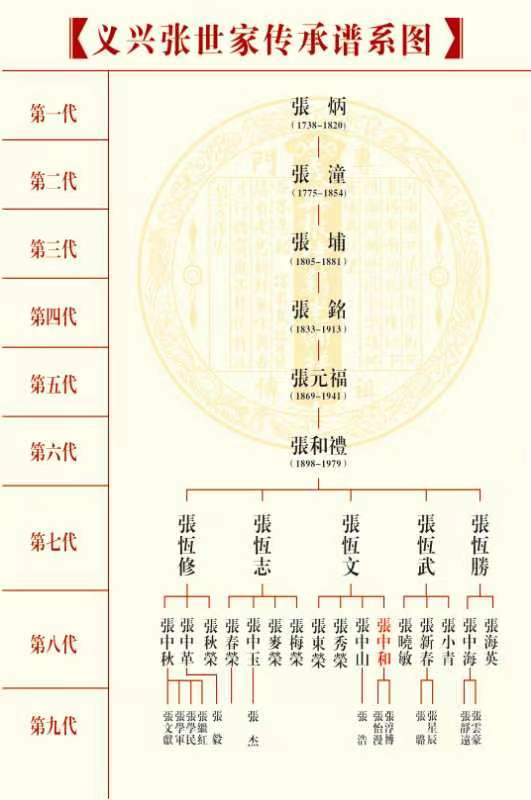 义兴张世家传承谱系图
第一代
張炳
(1738-1820)
第二代
張潼
(1775-1854)
第三代
張埔
(1805-1881)
第四代
張銘
(1833-1913)
第五代
張元福
(1869-1941)
第六代
張和禮
(1898-1979)
第七代
張恆修
張恆志
張恆文
張恆武
張恆勝
第八代
張中秋
張中革
張秋榮
張春榮
張中玉
張麥榮
張梅榮
張東榮
張秀榮
張中山
張中和
張曉敏
張新春
張小青
張中海
張海英
第九代
張文獻
張學軍
張學民
張繼紅
張毅
張杰
張浩
張怡漫
張淳博
張璐
張星辰
張靜遠
張雲豪